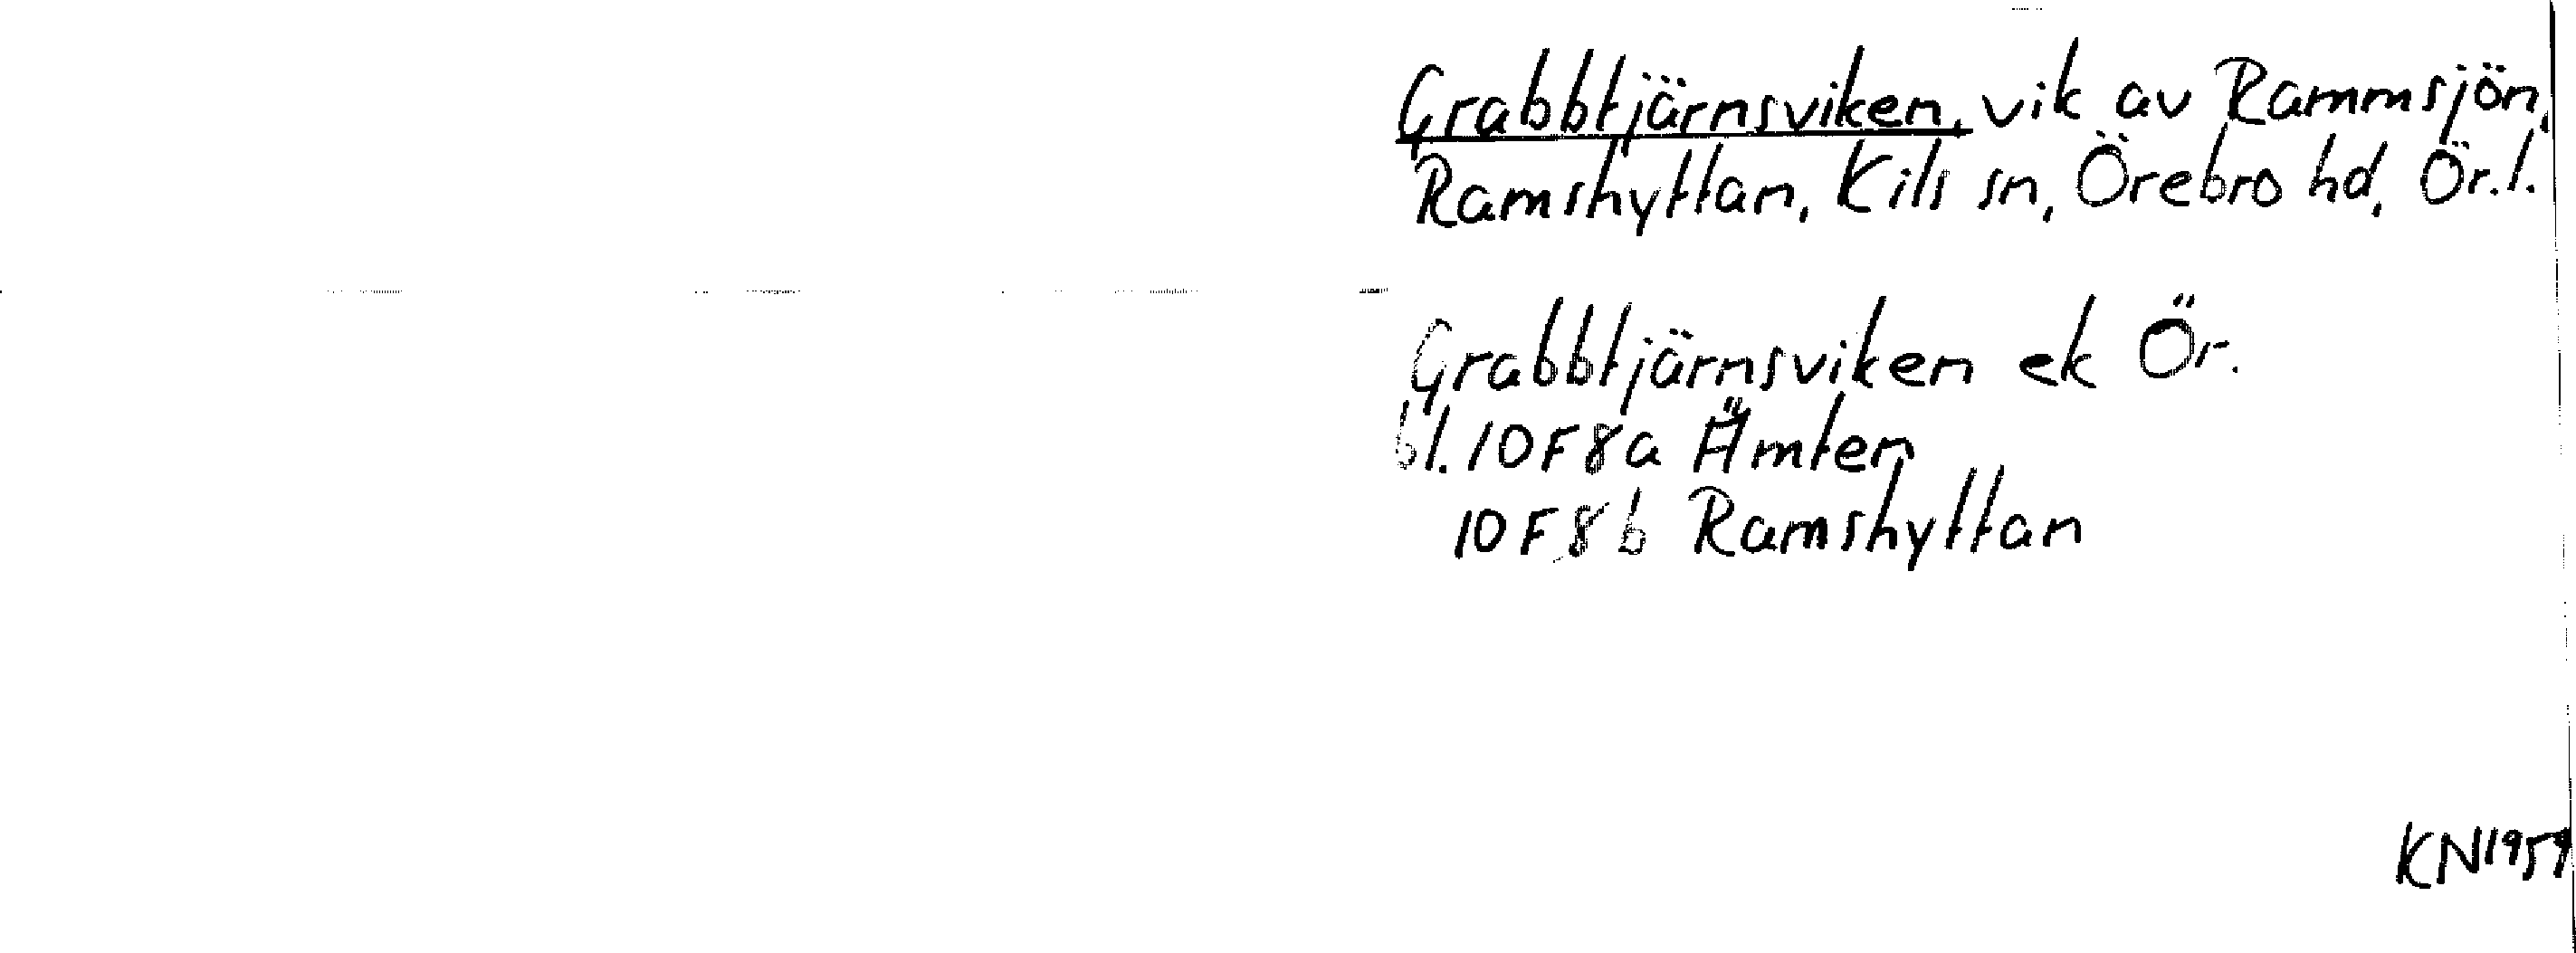 Grabbtjärnsviken, vik av Rammsjön,
Ramshyttan, Kils sn, Örebro hd, Ör.l.
Grabbtjärnsviken ek Ör.
bl. 10F8a Ämten
10F8b Ramshyttan
KN1959